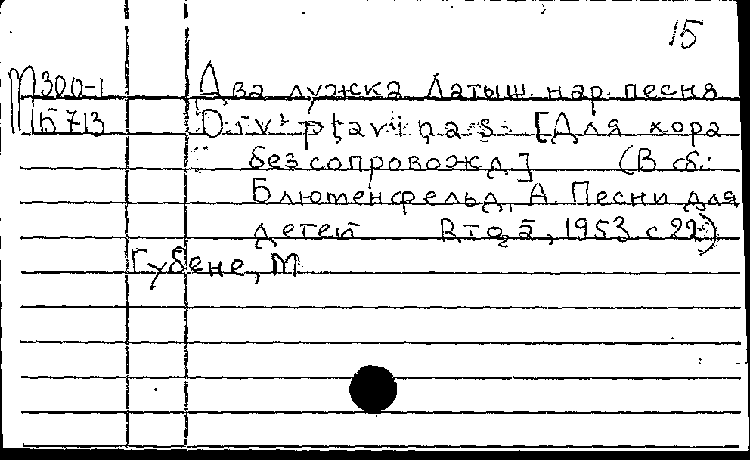 15
М300-1 Два лужка Латыш. нар. песня
Б713 Divi pļaviņas. [Для хора
без сопровожд.] (В сб.:
Блюменфельд, А. Песни для
детей. 1953 с 22)
Губене, М